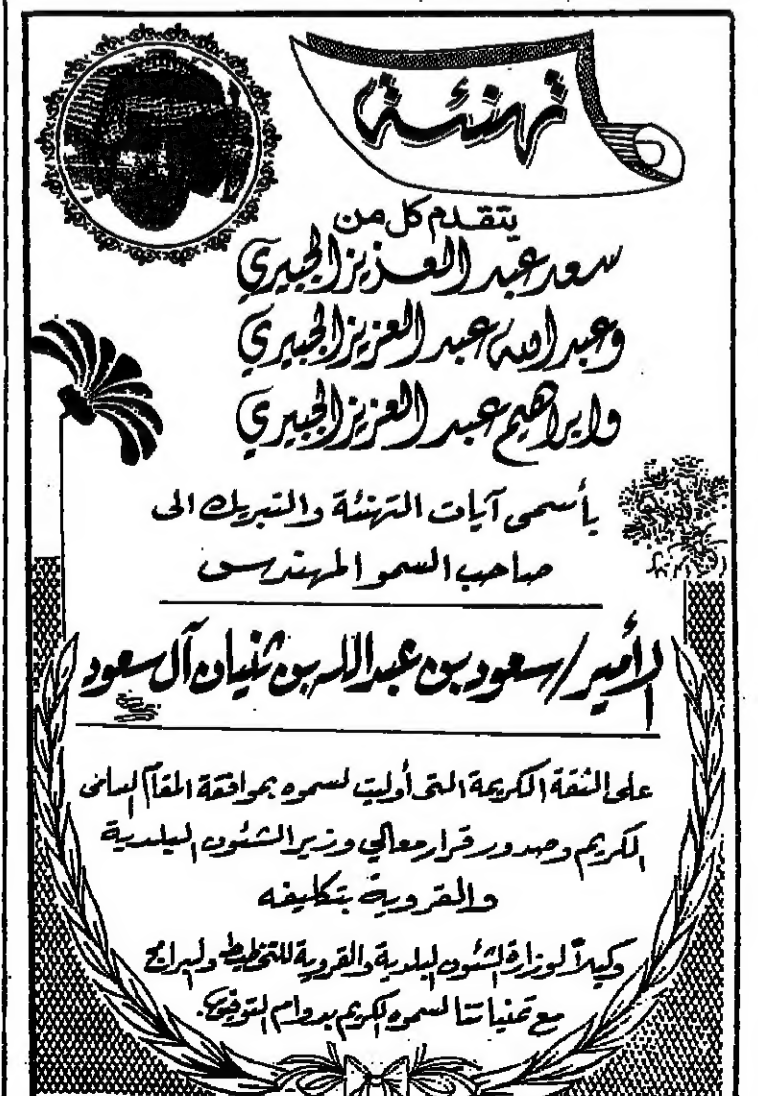 تهنئة
يتقدم كل من
سعد عبد العزيز الجبيري
وعبدالله عبد العزيز الجبيري
وابراهيم عبد العزيز الجبيري
بأسمى آيات التهنئة والتبريك الى
صاحب السمو المهندس
الأمير/سعود بن عبدالله بن ثنيان آل سعود
على الثقة الكريمة التى أوليت لسموه بموافقة المقام السامى
الكريم وصدور قرار معالي وزير الشئون البلدية
والقروية بتكليفه
وكيلاً لوزارة الشئون البلدية والقروية للتخطيط والبرامج
مع تمنياتنا لسموه الكريم بدوام التوفيق.